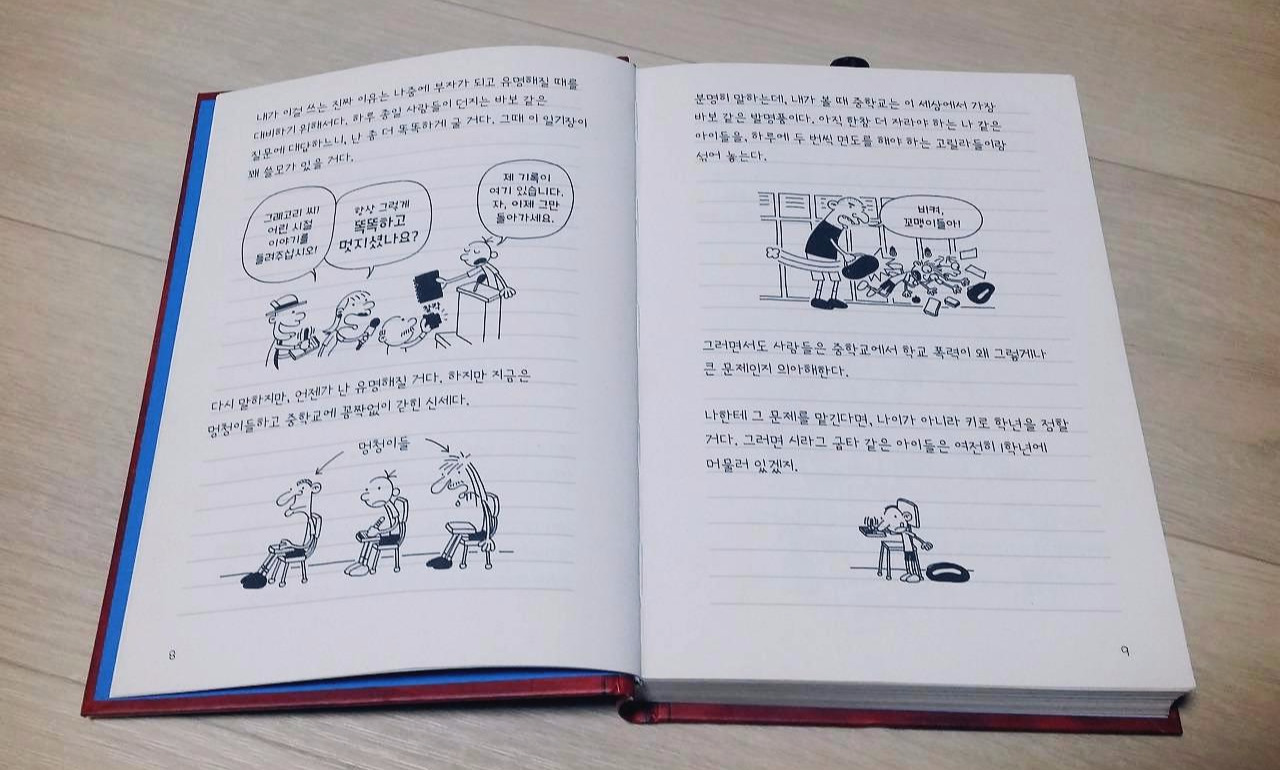 내가 이걸 쓰는 진짜 이유는 나중에 부자가 되고 유명해질 때를
대비하기 위해서다. 하루 종일 사람들이 던지는 바보 같은
질문에 대답하느니, 난 좀 더 똑똑하게 굴 거다. 그때 이 일기장이
꽤 쓸모가 있을 거다.
그레고리 씨!
어린 시절
이야기를
들려주십시오!
항상 그렇게
똑똑하고
멋지셨나요?
제 기록이
여기 있습니다.
자, 이제 그만
돌아가세요.
찰칵
다시 말하지만, 언젠가 난 유명해질 거다. 하지만 지금은
멍청이들하고 중학교에 꼼짝없이 갇힌 신세다.
멍청이들
8
분명히 말하는데, 내가 볼 때 중학교는 이 세상에서 가장
바보 같은 발명품이다. 아직 한참 더 자라야 하는 나 같은
아이들을, 하루에 두 번씩 면도를 해야 하는 고릴라들이랑
섞어 놓는다.
비켜,
꼬맹이들아!
그러면서도 사람들은 중학교에서 학교 폭력이 왜 그렇게나
큰 문제인지 의아해한다.
나한테 그 문제를 맡긴다면, 나이가 아니라 키로 학년을 정할
거다. 그러면 시라그 굽타 같은 아이들은 여전히 1학년에
머물러 있겠지.
9